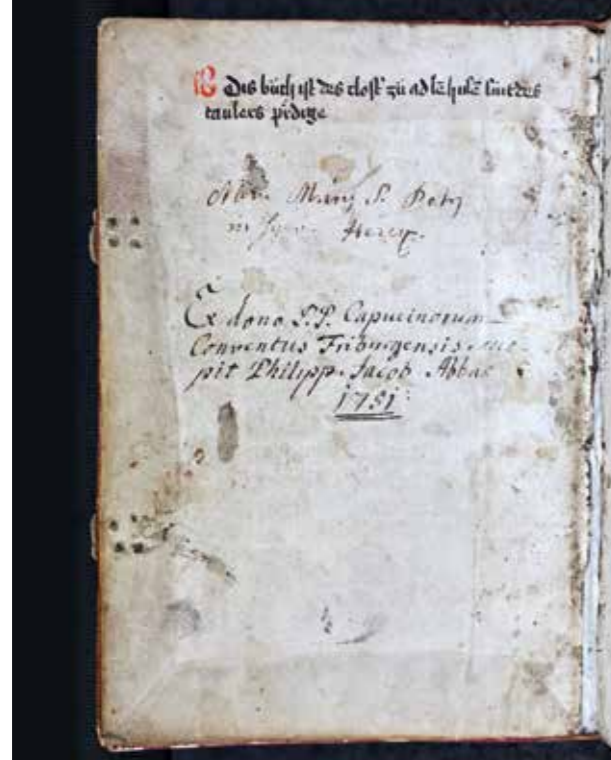 Dis bůch ist des clost' zů adelhusē sint des
taulers p'dige
Mary S. Petri
in
Ex dono P.P. Capucinorum
Conventus Friburgensis acce-
pit Philipp. Jacob Abbas
1751